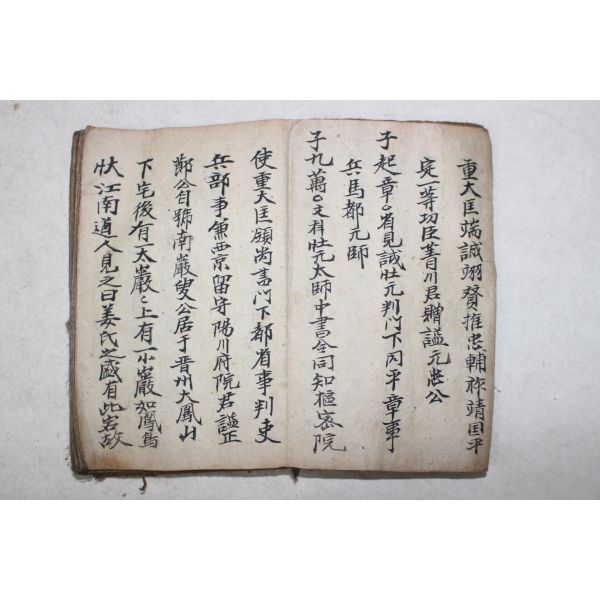 重大匡端誠翊贊推忠輔祚靖国平
定一等功臣菁川君贈諡元忠公
子起章○省見誠壯元判門下内平章事
兵馬都元帥
子九萬○文科壯元太師中書令同知樞密院
使重大匡領尚書门下都省事判吏
兵部事兼西京留守陽川府院君諡正
鄭公自號南巖叟公居于晋州大鳳山
下宅後有一大巖〻上有一小巖如鳳鳥
狀江南道人見之曰姜氏之盛有此岩故